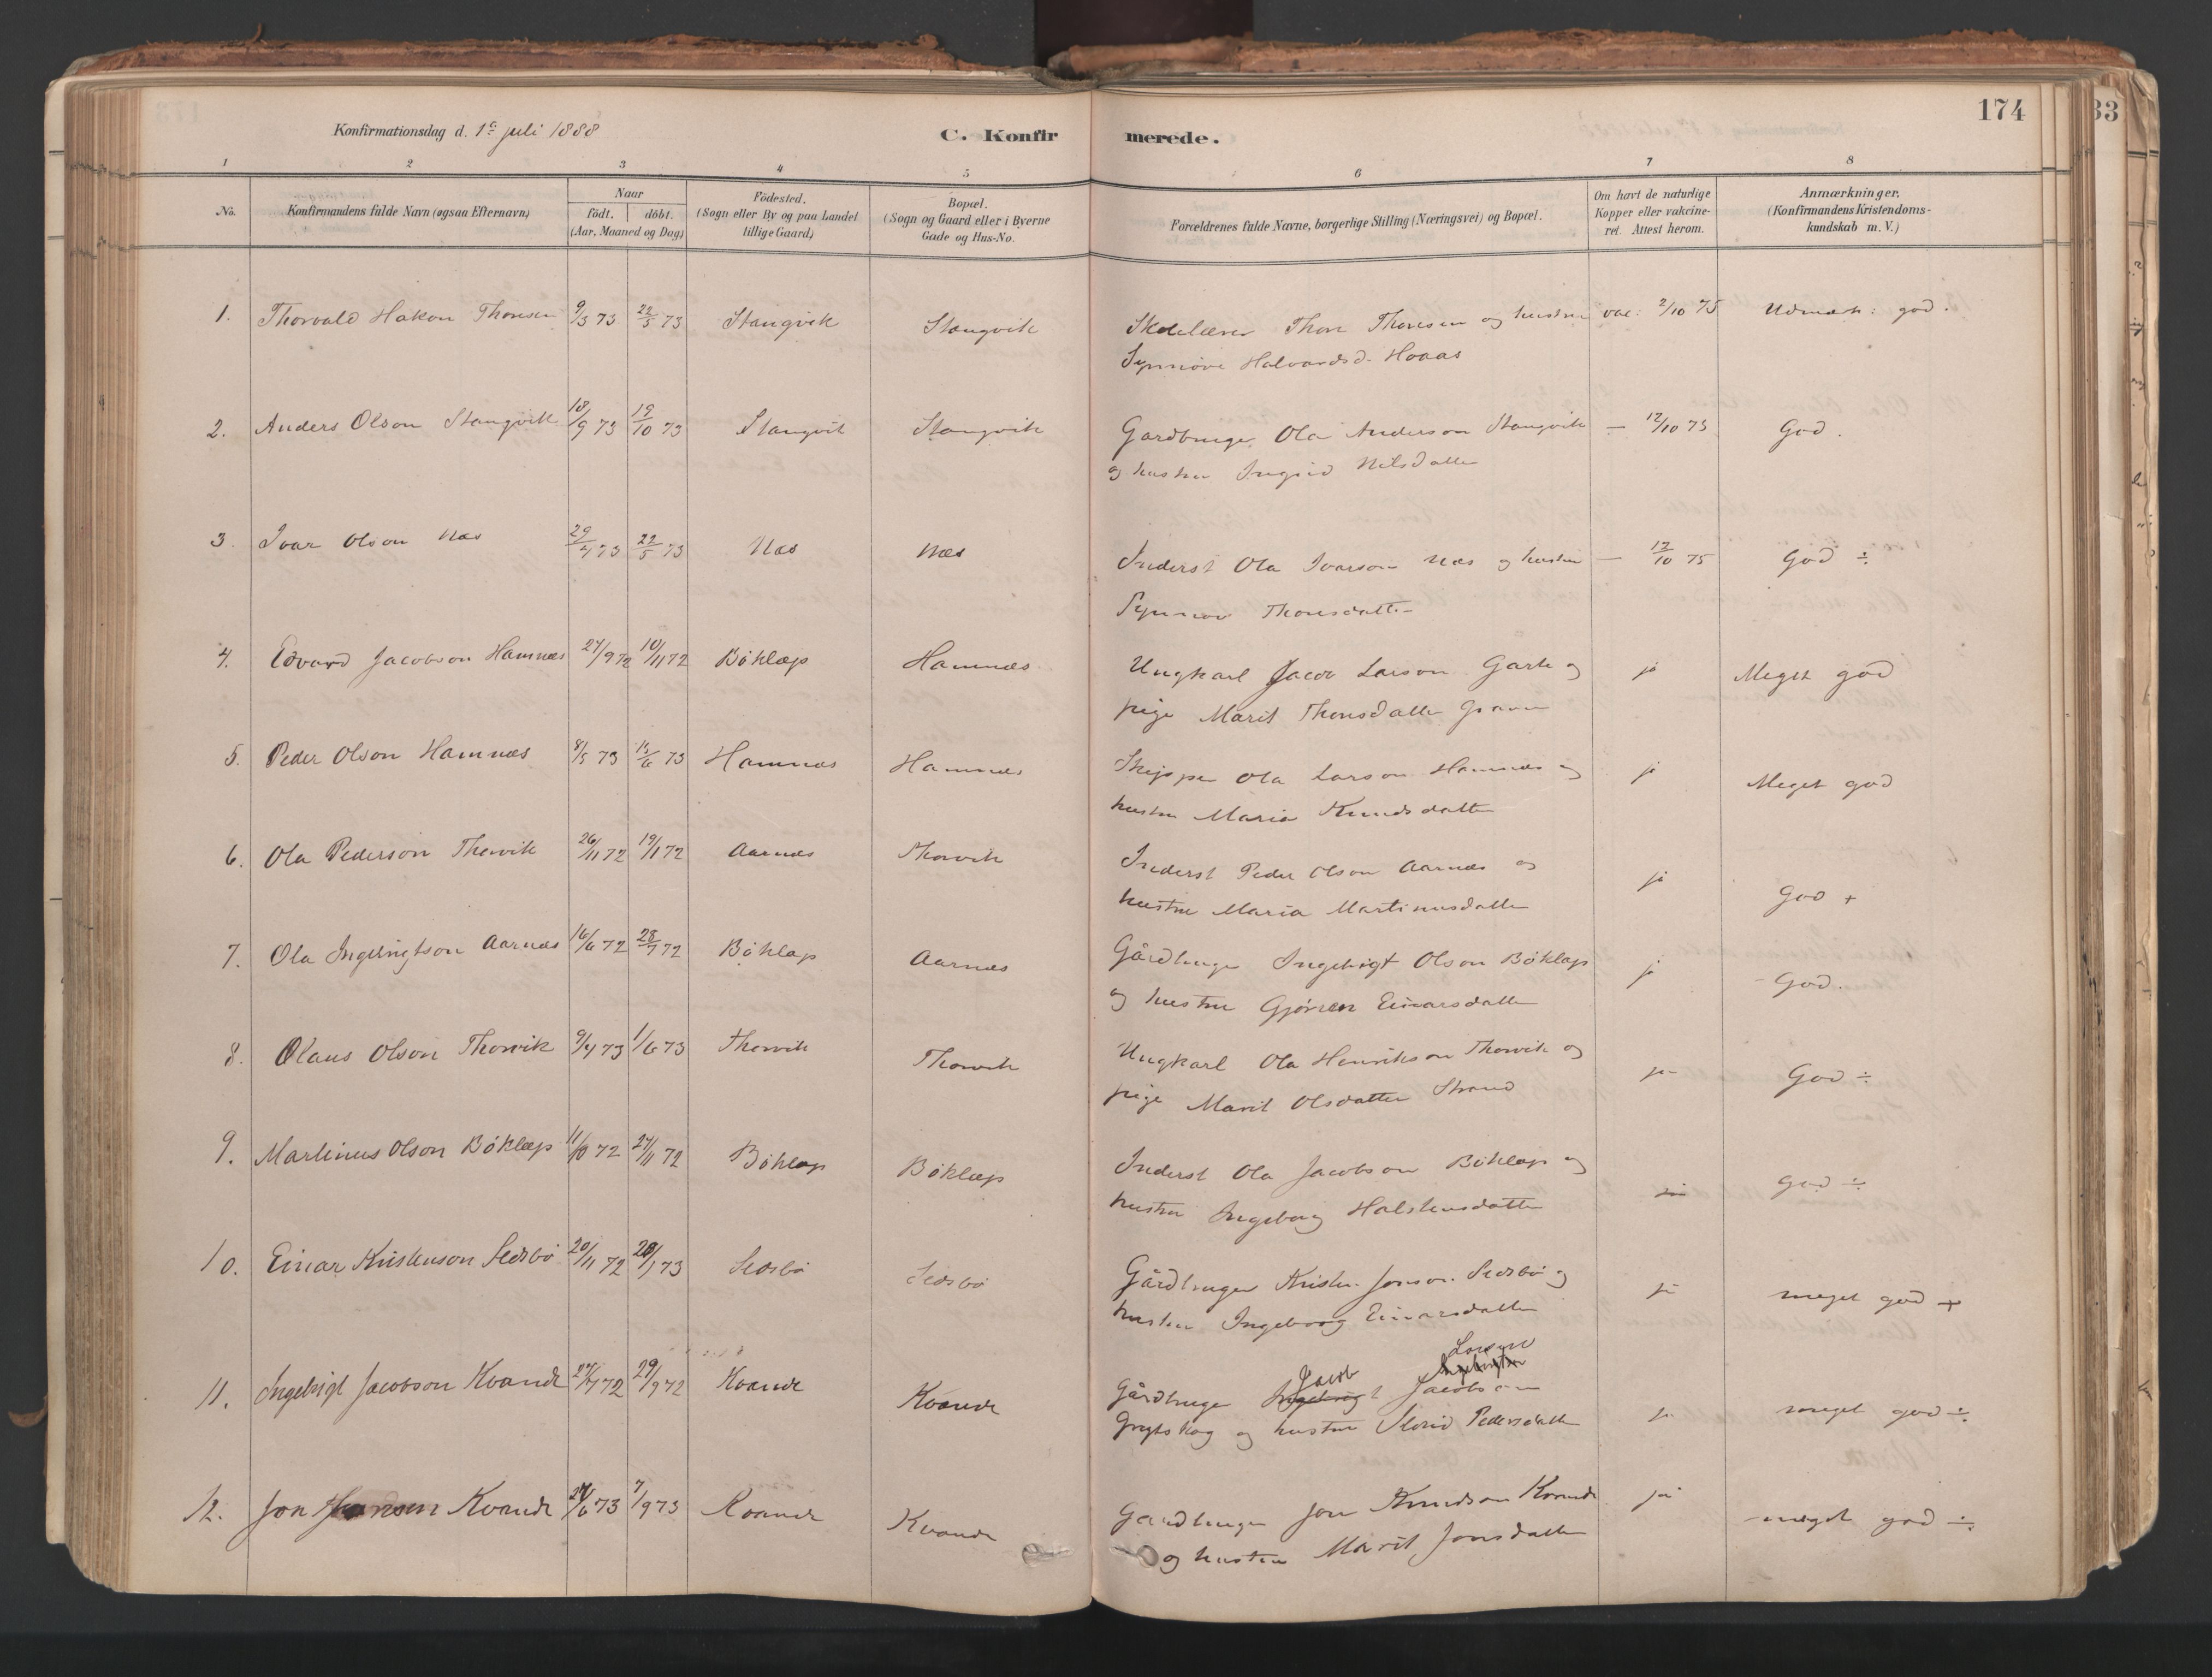 174
33
Konfirmationsdag d. 1ste juli 1888
C. Konfirmerede.
1 2 3 4 5 6 7 8
No. Konfirmandens fulde Navn (ogsaa Efternavn) Naar födt. döbt. (Aar, Maaned og Dag) Födested. (Sogn eller By og paa Landet tillige Gaard) Bopæl. (Sogn og Gaard eller i Byerne Gade og Hus-No. Forældrenes fulde Navne, borgerlige Stilling (Næringsvei) og Bopæl. Om havt de naturlige Kopper eller vakcineret. Attest herom. Anmærkninger, (Konfirmandens Kristendomskundskab m. V.)
1. Thorvald Hakon Thoresen 9/3 73 22/5 73 Stangvik Stangvik Skolelærer Thore Thoresen og hustru vac: 2/10 75 Udmærk: god.
Synnöve Halvardsd. Hoaas
2. Anders Olson Stangvik 18/9 73 19/10 73 Stangvik Stangvik Gardbruger Ola Anderson Stangvik — 12/10 75 God.
og hustru Ingrid Nilsdatter
3. Ivar Olson Næs 29/4 73 22/5 73 Næs Næs Inderst Ola Ivarson Næs og hustru — 12/10 75 God ÷
Synnöv Thoresdatter
4. Edvard Jacobson Hamnæs 27/9 72 10/11 72 Böklæp Hamnæs Ungkarl Jacob Larson Garte og ja Meget god
pige Marit Thoresdatter
5. Peder Olson Hamnæs 8/5 73 15/6 73 Hamnæs Hamnæs Skipper Ola Larson Hamnæs og ja Meget god
hustru Maria Knudsdatter
6. Ola Pederson Thorvik 26/11 72 19/11 72 Aarnæs Thorvik Inderst Peder Olson Aarnæs og ja God +
hustru Maria Martinusdatter
7. Ola Ingebrigtson Aarnæs 16/6 72 28/7 72 Böklap Aarnæs Gårdbruger Ingebrigt Olson Böklap ja God.
og hustru Gjören Einarsdatter
8. Olaus Olson Thorvik 9/4 73 1/6 73 Thorvik Thorvik Ungkarl Ola Henrikson Thorvik og ja God ÷
pige Marit Olsdatter Strand
9. Martinus Olson Böklæp 11/10 72 24/11 72 Böklap Böklæp Inderst Ola Jacobson Böklap og ja god ÷
hustru Ingeborg Halstensdatter
10. Einar Kristenson Sedsbö 20/11 72 28/1 73 Sedsbö Sedsbö Gårdbruger Kristen Jonson Sedsbö og ja meget god +
hustru Ingeborg Einarsdatter
Larson
Jacob Ingebrigtson
11. Ingebrigt Jacobson Kvande 22/7 72 29/9 72 Kvande Kvande Gårdbruger Ingebrigt Jacobson ja meget god ÷
Grytskog og hustru Pedersdatter
12. Jon Kvande 24/6 73 7/9 73 Kvande Kvande Gardbruger Jon Knudson Kvande ja meget god ÷
og hustru Marit Jonsdatter